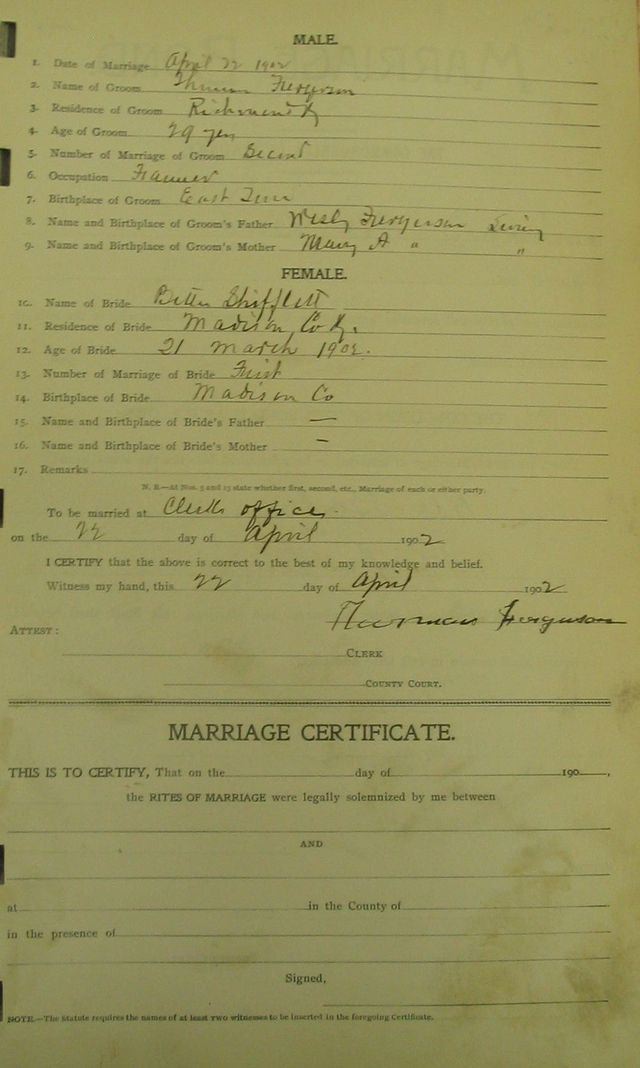 MALE.
1. Date of Marriage April 22 1902
2. Name of Groom Fergerson
3. Residence of Groom Richmond Ky
4. Age of Groom 29 yrs
5. Number of Marriage of Groom Second
6. Occupation Farmer
7. Birthplace of Groom East Tenn
8. Name and Birthplace of Groom's Father Wesly Fergerson Living
9. Name and Birthplace of Groom's Mother Mary A " "
FEMALE.
10. Name of Bride Shifflett
11. Residence of Bride Madison Co Ky.
12. Age of Bride 21 March 1902.
13. Number of Marriage of Bride First
14. Birthplace of Bride Madison Co
15. Name and Birthplace of Bride's Father —
16. Name and Birthplace of Bride's Mother —
17. Remarks
N. B.—At Nos. 5 and 13 state whether first, second, etc., Marriage of each or either party.
To be married at Clerks office.
on the 22 day of April 1902
I CERTIFY that the above is correct to the best of my knowledge and belief.
Witness my hand, this 22 day of April 1902
Ferguson
ATTEST:
CLERK
COUNTY COURT.
MARRIAGE CERTIFICATE.
THIS IS TO CERTIFY, That on the day of 190 ,
the RITES OF MARRIAGE were legally solemnized by me between
AND
at in the County of
in the presence of
Signed,
NOTE.—The Statute requires the names of at least two witnesses to be inserted in the foregoing Certificate.